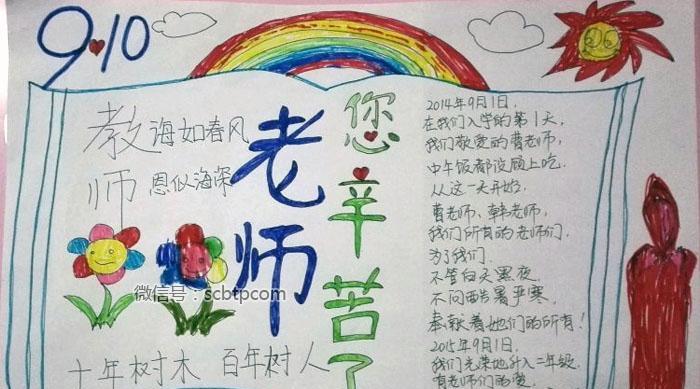 9·10
教诲如春风
师恩似海深
老师
您辛苦了
十年树木 百年树人
2014年9月1日.
在我们入学的第1天,
我们敬爱的曹老师,
中午饭都没顾上吃.
从这一天开始.
曹老师、韩老师,
我们所有的老师们.
为了我们.
不管白天黑夜.
不问酷暑严寒.
奉献着她们的所有!
2015年9月1日.
我们光荣地升入二年级.
有老师们的爱
微信号:scbtpcom